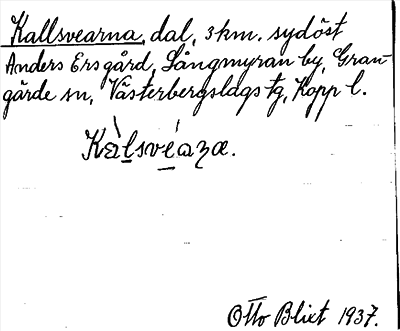 Kallsvearna, dal, 3 km. sydöst
Anders Ersgård, Långmyran by, Gran-
gärde sn, Västerbergslags tg, Kopp l.
Kàlsvéaꞃæ.
Otto Blixt 1937.